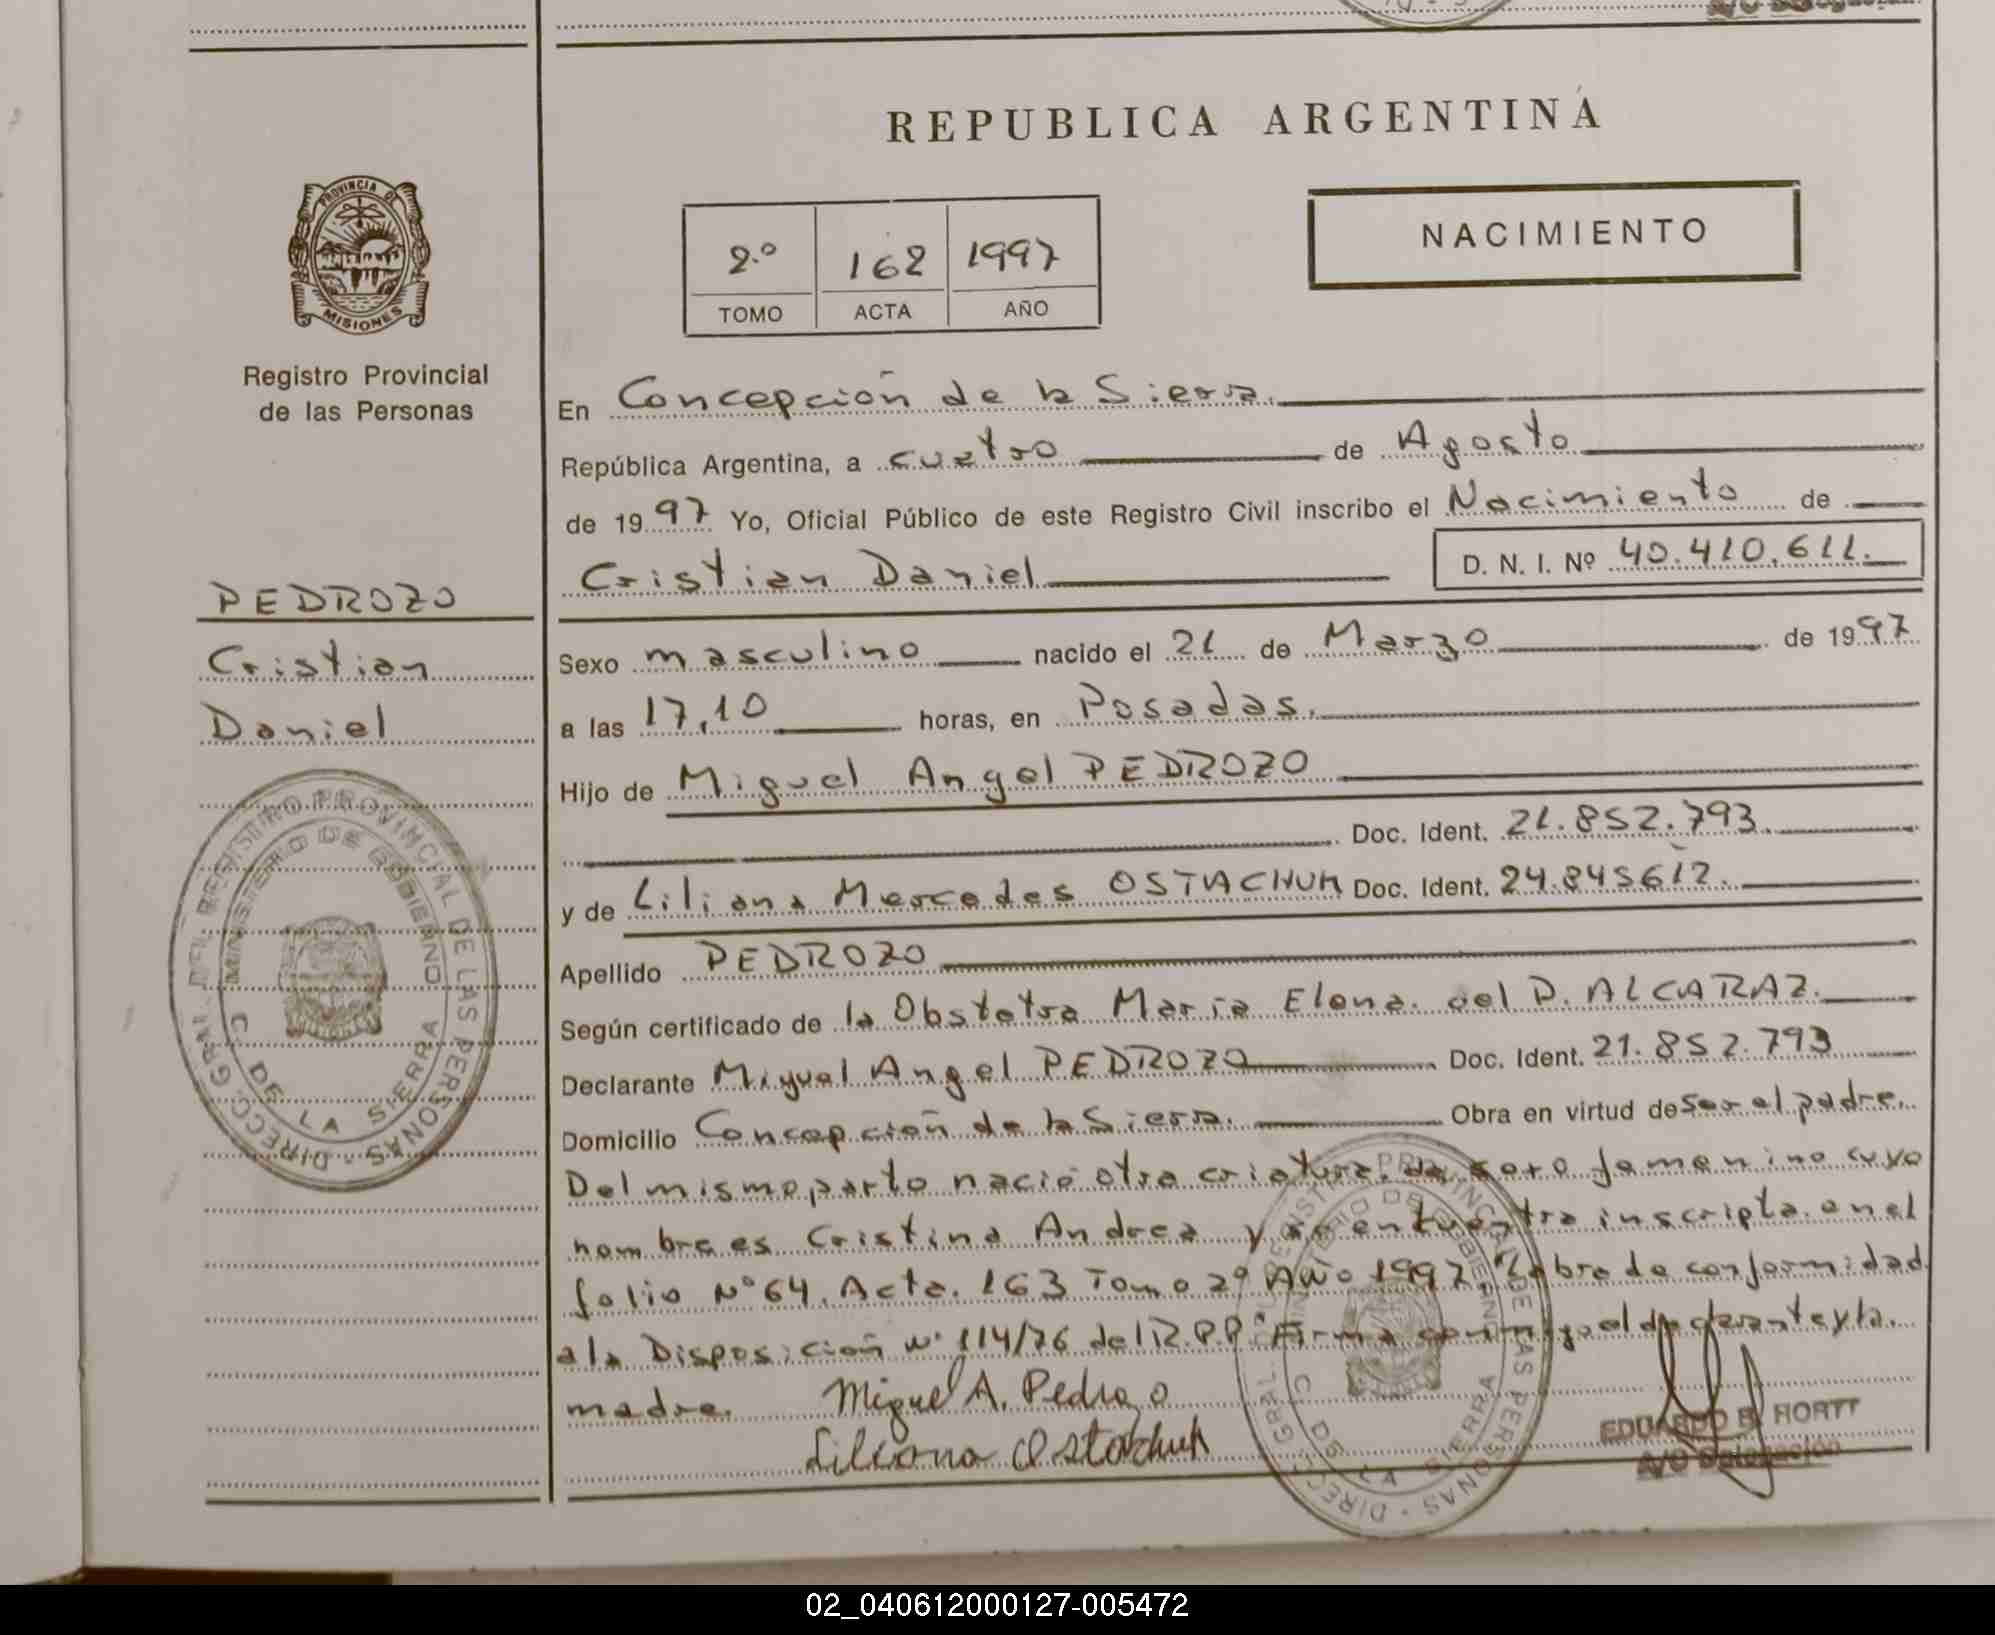 REPUBLICA ARGENTINA
PROVINCIA DE
MISIONES
Registro Provincial
de las Personas
2.º 162 1997
TOMO ACTA AÑO
NACIMIENTO
En Concepción de la Sierra.
República Argentina, a cuatro de Agosto
de 1997 Yo, Oficial Público de este Registro Civil inscribo el Nacimiento de
Cristian Daniel D. N. I. Nº 40.410.611.
PEDROZO
Cristian
Daniel
Sexo masculino nacido el 21 de Marzo de 1997
a las 17,10 horas, en Posadas.
Hijo de Miguel Angel PEDROZO
Doc. Ident. 21.852.793
y de Liliana Mercedes OSTACHUK Doc. Ident. 24.845617.
Apellido PEDROZO
Según certificado de la Obstetra Maria Elena del P. ALCARAZ.
Declarante Miguel Angel PEDROZO Doc. Ident. 21.852.793
Domicilio Concepción de la Sierra. Obra en virtud de ser el padre.
Del mismo parto nació otra criatura de sexo femenino cuyo
nombre es Cristina Andrea y se encuentra inscripta en el
folio Nº 64. Acta. 163 Tomo 2º Año 1997. Labrada conformidad
a la Disposición Nº 114/76 del R.P.P. Firma conmigo el declarante y la
madre. Miguel A. Pedrozo
Liliana Ostachuk
EDUARDO B. HORTT
A/C Delegación
DIRECC. GRAL. DEL REGISTRO PROVINCIAL DE LAS PERSONAS
MINISTERIO DE GOBIERNO
C. DE LA SIERRA
DIRECC. GRAL. DEL REGISTRO PROVINCIAL DE LAS PERSONAS
MINISTERIO DE GOBIERNO
C. DE LA SIERRA
02_040612000127-005472